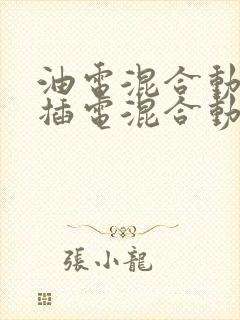 油電混合動
插電混合動
張小龍